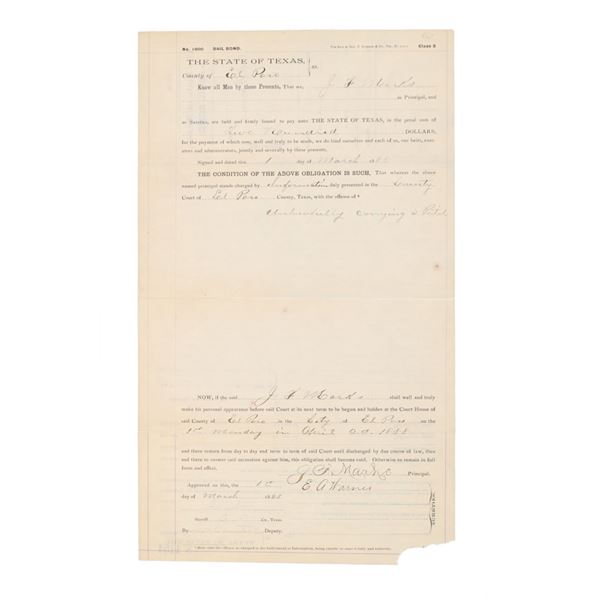 No. 1600 BAIL BOND. Class 3
THE STATE OF TEXAS, ss.
County of El Paso
Know all Men by these Presents, That we, J F Marks
as Principal, and
as Sureties, are held and firmly bound to pay unto THE STATE OF TEXAS, in the penal sum of
Two Hundred DOLLARS,
for the payment of which sum, well and truly to be made, we do bind ourselves and each of us, our heirs, exec-
utors and administrators, jointly and severally by these presents.
Signed and dated this 1 March 188
THE CONDITION OF THE ABOVE OBLIGATION IS SUCH, That whereas the above
named principal stands charged by Information, duly presented in the County
Court of El Paso County, Texas, with the offense of *
Unlawfully Carrying a Pistol
NOW, if the said J F Marks shall well and truly
make his personal appearance before said Court at its next term to be begun and holden at the Court House of
said County of El Paso in the City of El Paso on the
1st Monday in April A.D. 1888
and there remain from day to day and term to term of said Court until discharged by due course of law, then
and there to answer said accusation against him, this obligation shall become void. Otherwise to remain in full
force and effect.
J. F. Marks Principal.
Approved on this, the 1st E A Harris
day of March 188
Sheriff Co., Texas
By Deputy.
SURETIES.